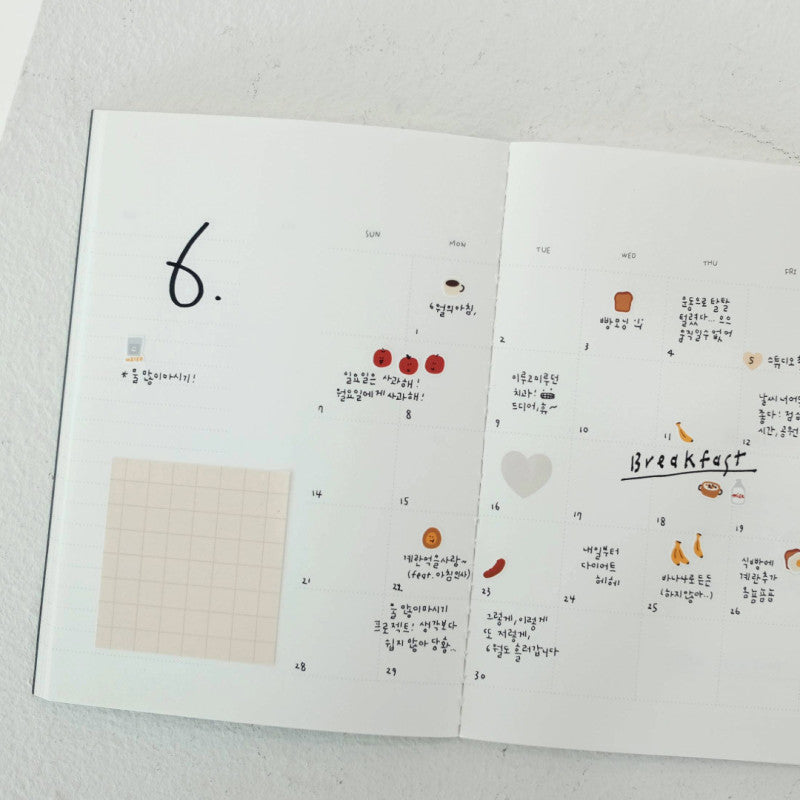 6.
SUN
MON
TUE
WED
THU
FRI
6월의 아침,
1
2
빵모닝
3
운동으로 탈탈
털렸다... 으으
움직일수 없어
4
5
스튜디오
WATER
* 물 많이마시기!
일요일은 사과해!
월요일에게 사과해!
7
8
이루고미루던
치과!
드디어, 휴~
9
10
11
날씨 너어무
좋다! 점심
시간, 공원
12
Breakfast
14
15
16
17
18
MILK
19
21
계란억을사랑~
(feat. 아침인사)
22
23
내일부터
다이어트
헤헤
24
바나나로 든든
(하지않아..)
25
식빵에
계란추가
욤뇸뇸뇸
26
28
물 많이마시기
프로젝트! 생각보다
쉽지 않아 당황...
29
그렇게, 이렇게
또 저렇게,
6월도 흘러갑니다
30